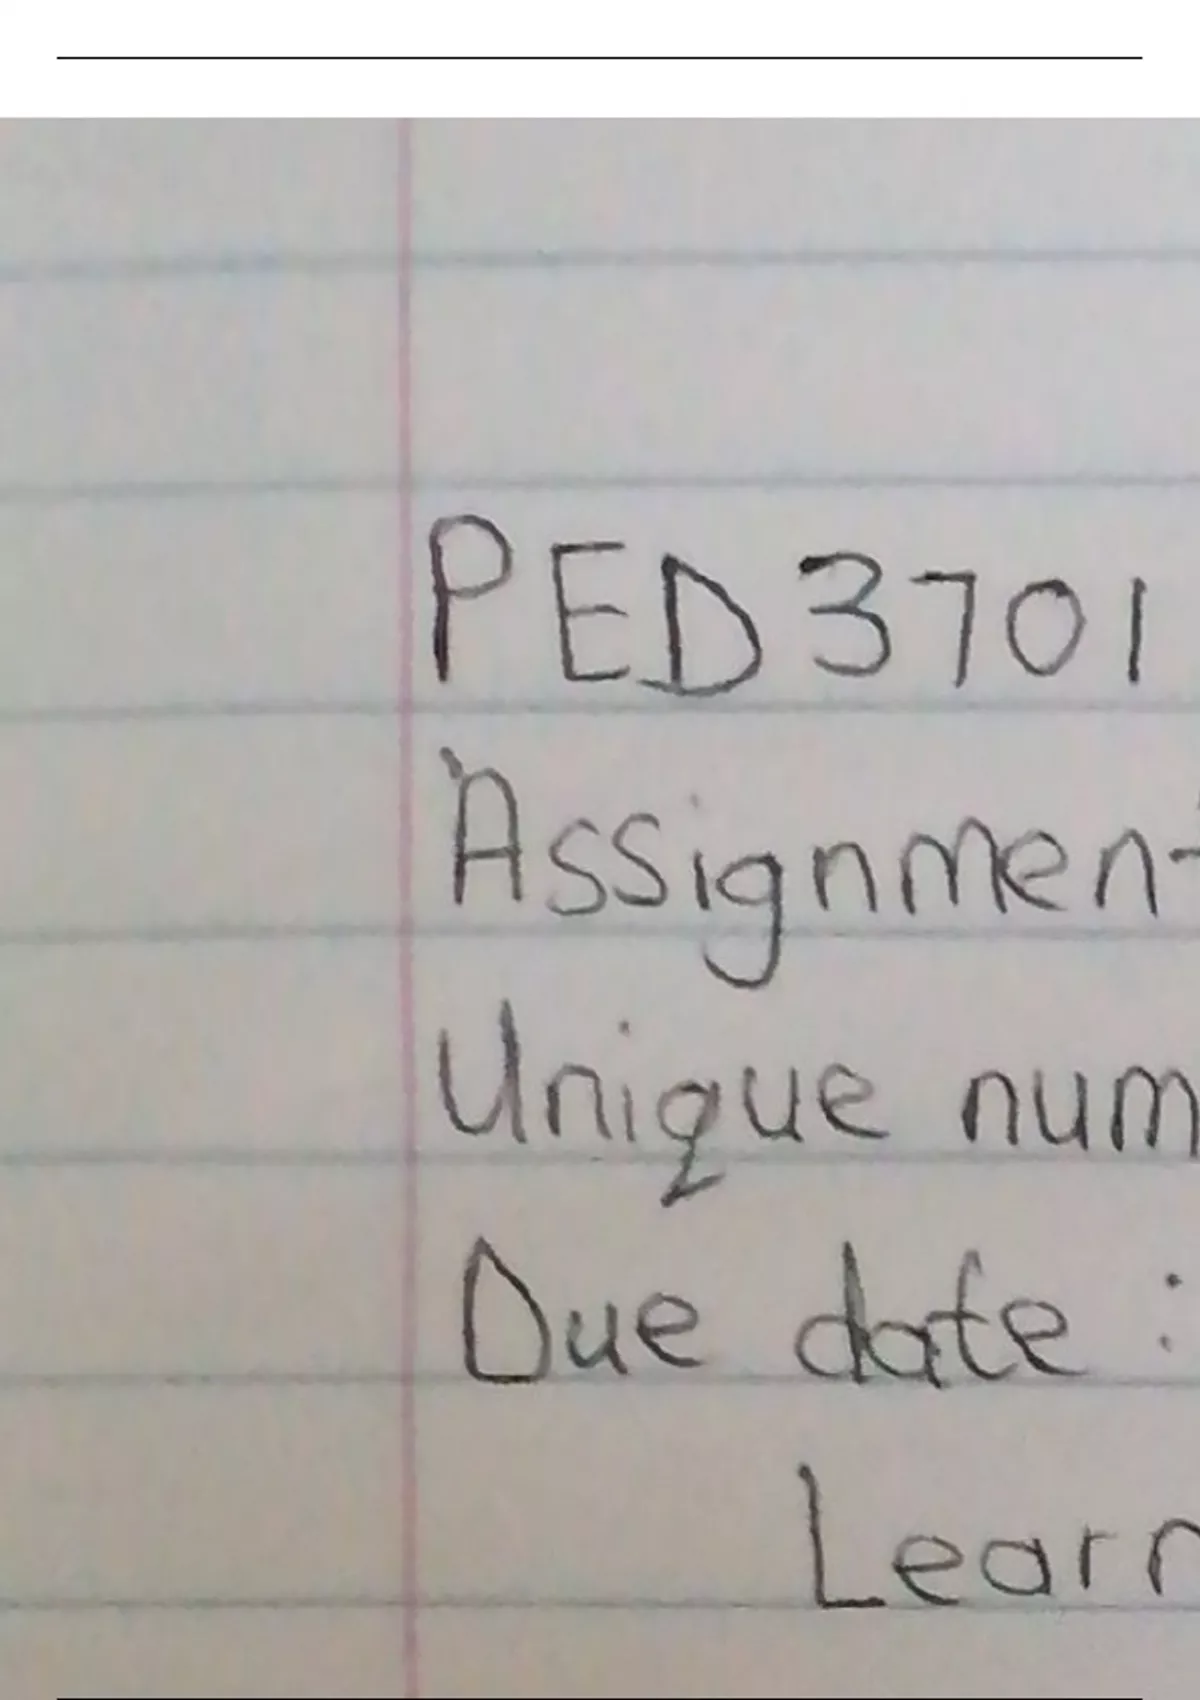 PED3701
Assignment
Unique num
Due date :
Learn